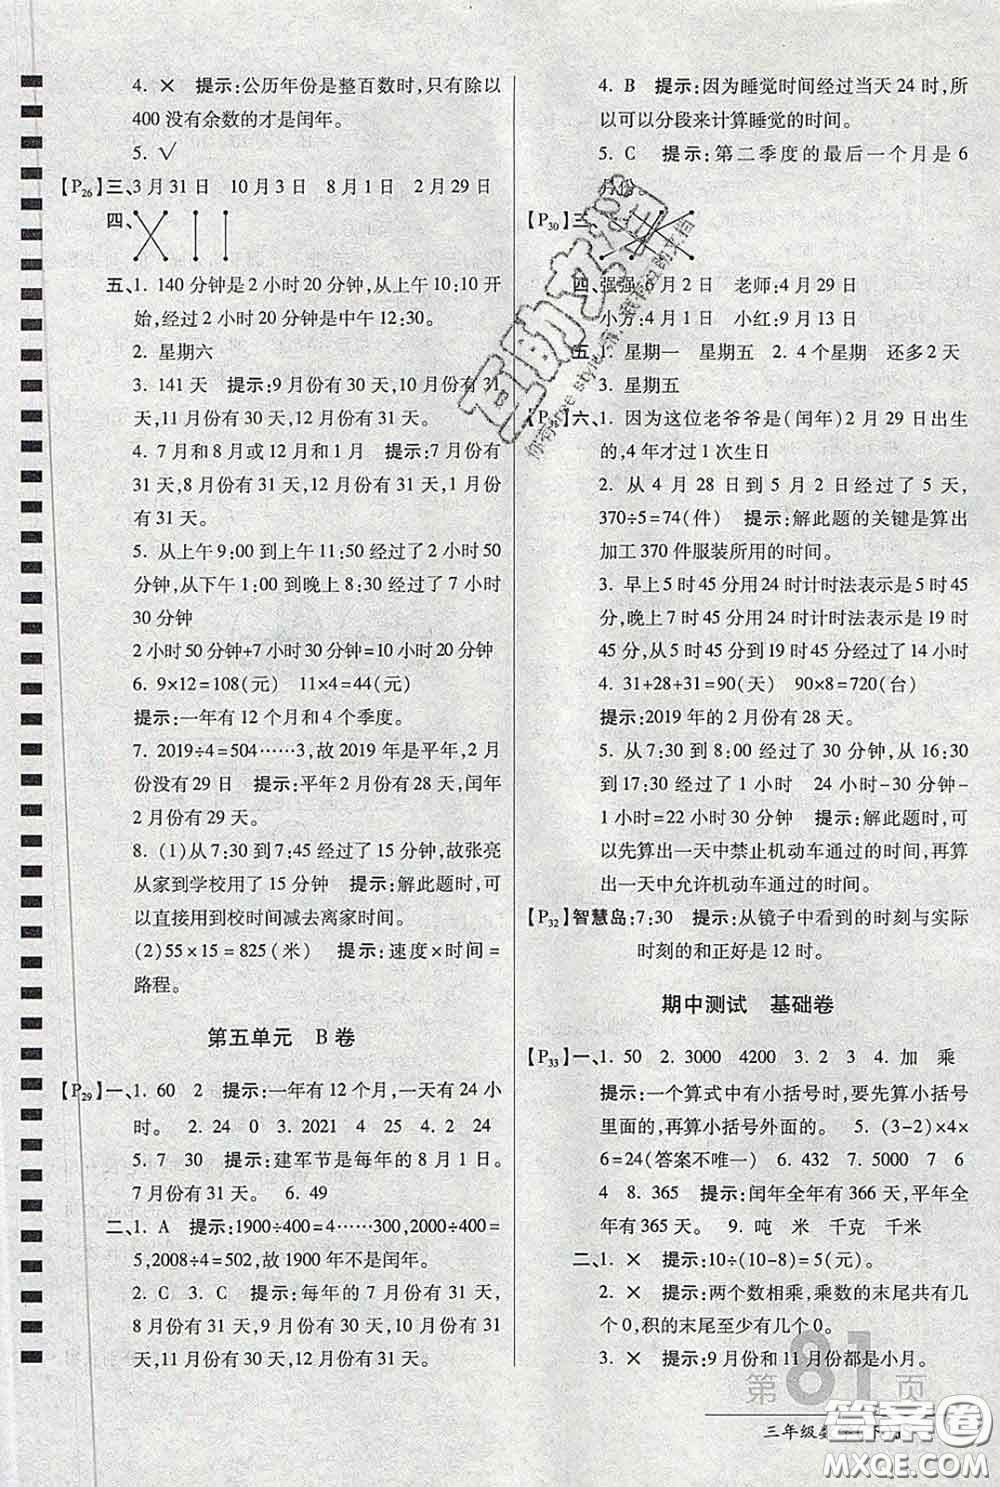 4. × 提示:公历年份是整百数时,只有除以
400 没有余数的才是闰年。
5. √
【P26】三、3 月 31 日 10 月 3 日 8 月 1 日 2 月 29 日
四、
五、1. 140 分钟是 2 小时 20 分钟,从上午 10:10 开
始,经过 2 小时 20 分钟是中午 12:30。
2. 星期六
3. 141 天 提示:9 月份有 30 天,10 月份有 31
天,11 月份有 30 天,12 月份有 31 天。
4. 7 月和 8 月或 12 月和 1 月 提示:7 月份有
31 天,8 月份有 31 天,12 月份有 31 天,1 月份
有 31 天。
5. 从上午 9:00 到上午 11:50 经过了 2 小时 50
分钟,从下午 1:00 到晚上 8:30 经过了 7 小时
30 分钟
2 小时 50 分钟+7 小时 30 分钟=10 小时 20 分钟
6. 9×12=108(元) 11×4=44(元)
提示:一年有 12 个月和 4 个季度。
7. 2019÷4=504……3,故 2019 年是平年,2 月
份没有 29 日 提示:平年 2 月份有 28 天,闰年
2 月份有 29 天。
8. (1)从 7:30 到 7:45 经过了 15 分钟,故张亮
从家到学校用了 15 分钟 提示:求经过时间,可
以直接用到校时间减去离家时间。
(2)55×15=825(米) 提示:速度×时间=
路程。
第五单元 B 卷
【P29】一、1. 60 2 提示:一年有 12 个月,一天有 24 小
时。 2. 24 0 3. 2021 4 25 4. 2 24
5. 7 30 提示:建军节是每年的 8 月 1 日。
7 月份有 31 天。 6. 49
二、1. A 提示:1900÷400=4……300,2000÷400=
5,2008÷4=502,故 1900 年不是闰年。
2. C 3. C 提示:每年的 7 月份有 31 天,
8 月份有 31 天,9 月份有 30 天,10 月份有 31
天,11 月份有 30 天,12 月份有 31 天。
4. B 提示:因为睡觉时间经过当天 24 时,所
以可以分段来计算睡觉的时间。
5. C 提示:第二季度的最后一个月是 6
月份。
【P30】三、
四、强强:6 月 2 日 老师:4 月 29 日
小方:4 月 1 日 小红:9 月 13 日
五、1. 星期一 星期五 2. 4 个星期 还多 2 天
3. 星期五
六、1. 因为这位老爷爷是(闰年)2 月 29 日出生
的,4 年才过 1 次生日
2. 从 4 月 28 日到 5 月 2 日经过了 5 天,
370÷5=74(件) 提示:解此题的关键是算出
加工 370 件服装所用的时间。
3. 早上 5 时 45 分用 24 时计时法表示是 5 时 45
分,晚上 7 时 45 分用 24 时计时法表示是 19 时
45 分,从 5 时 45 分到 19 时 45 分经过了 14 小时
4. 31+28+31=90(天) 90×8=720(台)
提示:2019 年的 2 月份有 28 天。
5. 从 7:30 到 8:00 经过了 30 分钟,从 16:30
到 17:30 经过了 1 小时 24 小时-30 分钟-
1 小时=22 小时 30 分钟 提示:解此题时,可
以先算出一天中禁止机动车通过的时间,再算
出一天中允许机动车通过的时间。
【P32】智慧岛:7:30 提示:从镜子中看到的时刻与实际
时刻的和正好是 12 时。
期中测试 基础卷
【P33】一、1. 50 2. 3000 4200 3. 2 3 4. 加 乘
提示:一个算式中有小括号时,要先算小括号
里面的,再算小括号外面的。 5. (3-2)×4×
6=24(答案不唯一) 6. 432 7. 5000 7 6
4 8. 365 提示:闰年全年有 366 天,平年全
年有 365 天。 9. 吨 米 千克 千米
二、1. × 提示:10÷(10-8)=5(元)。
2. × 提示:两个数相乘,乘数的末尾共有几
个 0,积的末尾至少有几个 0。
3. × 提示:9 月份和 11 月份都是小月。
第81页
三年级数
答案圈
MXQE.COM
互助文